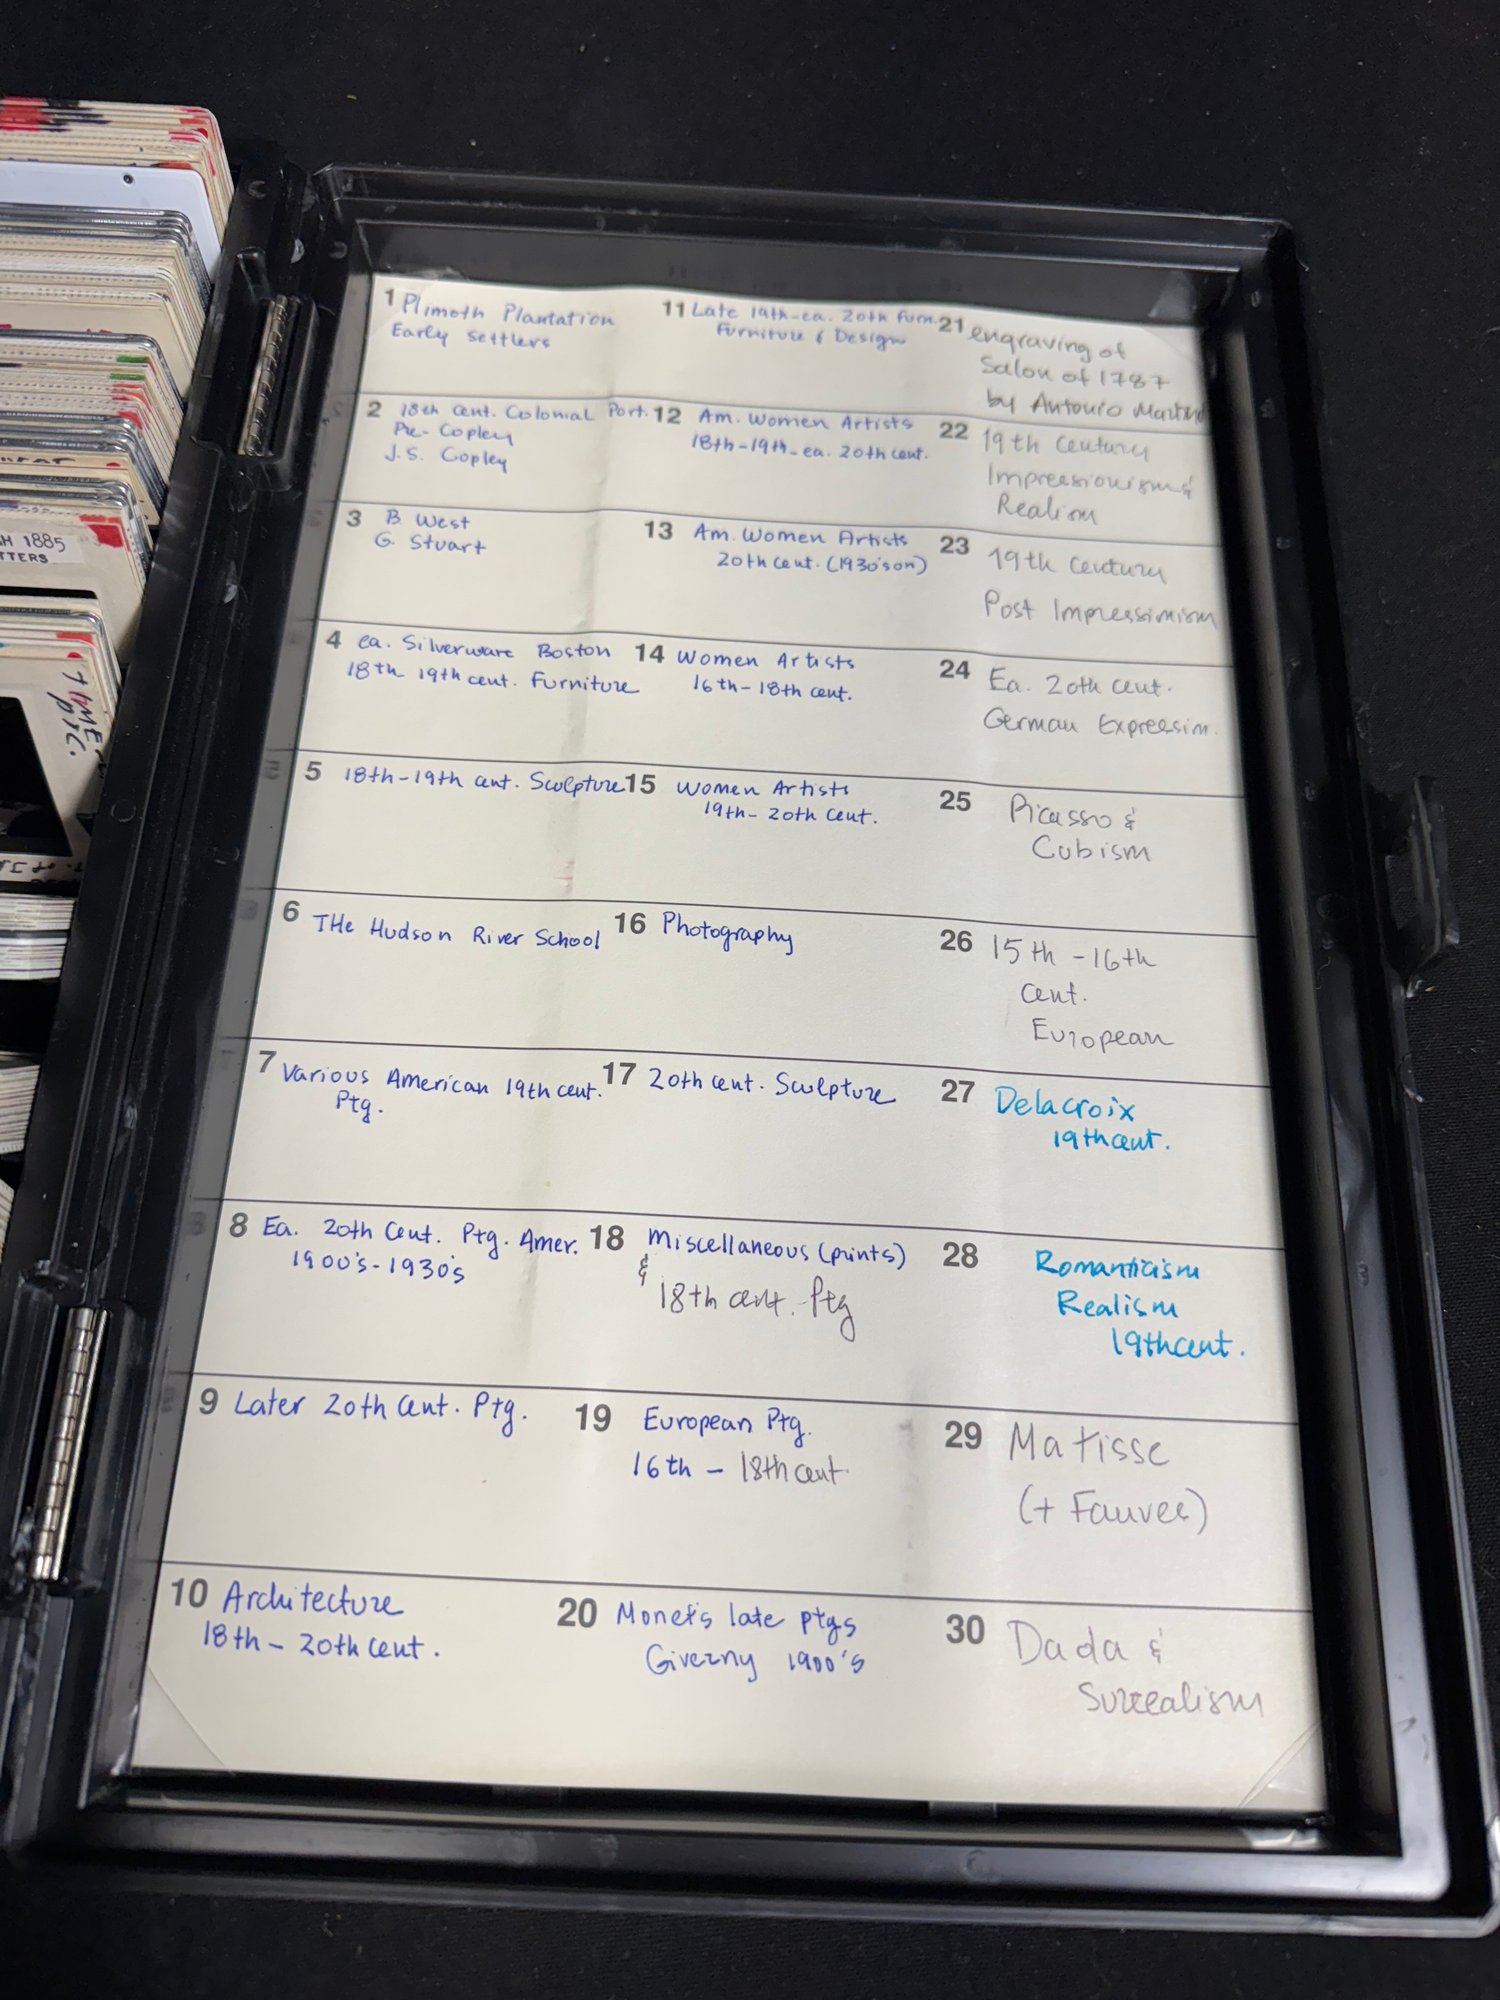 1 Plimoth Plantation
Early Settlers
2 18th cent. Colonial Port.
Pre-Copley
J.S. Copley
3 B. West
G. Stuart
4 ea. Silverware Boston
18th-19th cent. Furniture
5 18th-19th cent. Sculpture
6 THe Hudson River School
7 Various American 19th cent.
Ptg.
8 Ea. 20th Cent. Ptg. Amer.
1900's-1930's
9 Later 20th Cent. Ptg.
10 Architecture
18th-20th cent.
11 Late 19th-ea. 20th Furn.
Furniture & Design
12 Am. Women Artists
18th-19th-ea. 20th cent.
13 Am. Women Artists
20th cent. (1930's on)
14 Women Artists
16th-18th cent.
15 Women Artists
19th-20th cent.
16 Photography
17 20th cent. Sculpture
18 Miscellaneous (prints)
&
18th cent. Ptg
19 European Ptg.
16th - 18th cent
20 Monet's late ptgs
Giverny 1900's
21 engraving of
Salon of 1787
by Antonio
22 19th Century
Impressionism &
Realism
23 19th Century
Post Impressimism
24 Ea. 20th cent.
German Expressim.
25 Picasso &
Cubism
26 15th - 16th
cent.
European
27 Delacroix
19th cent.
28 Romanticism
Realism
19th cent.
29 Matisse
(+ Fauves)
30 Dada &
Surrealism
1885
PIC.